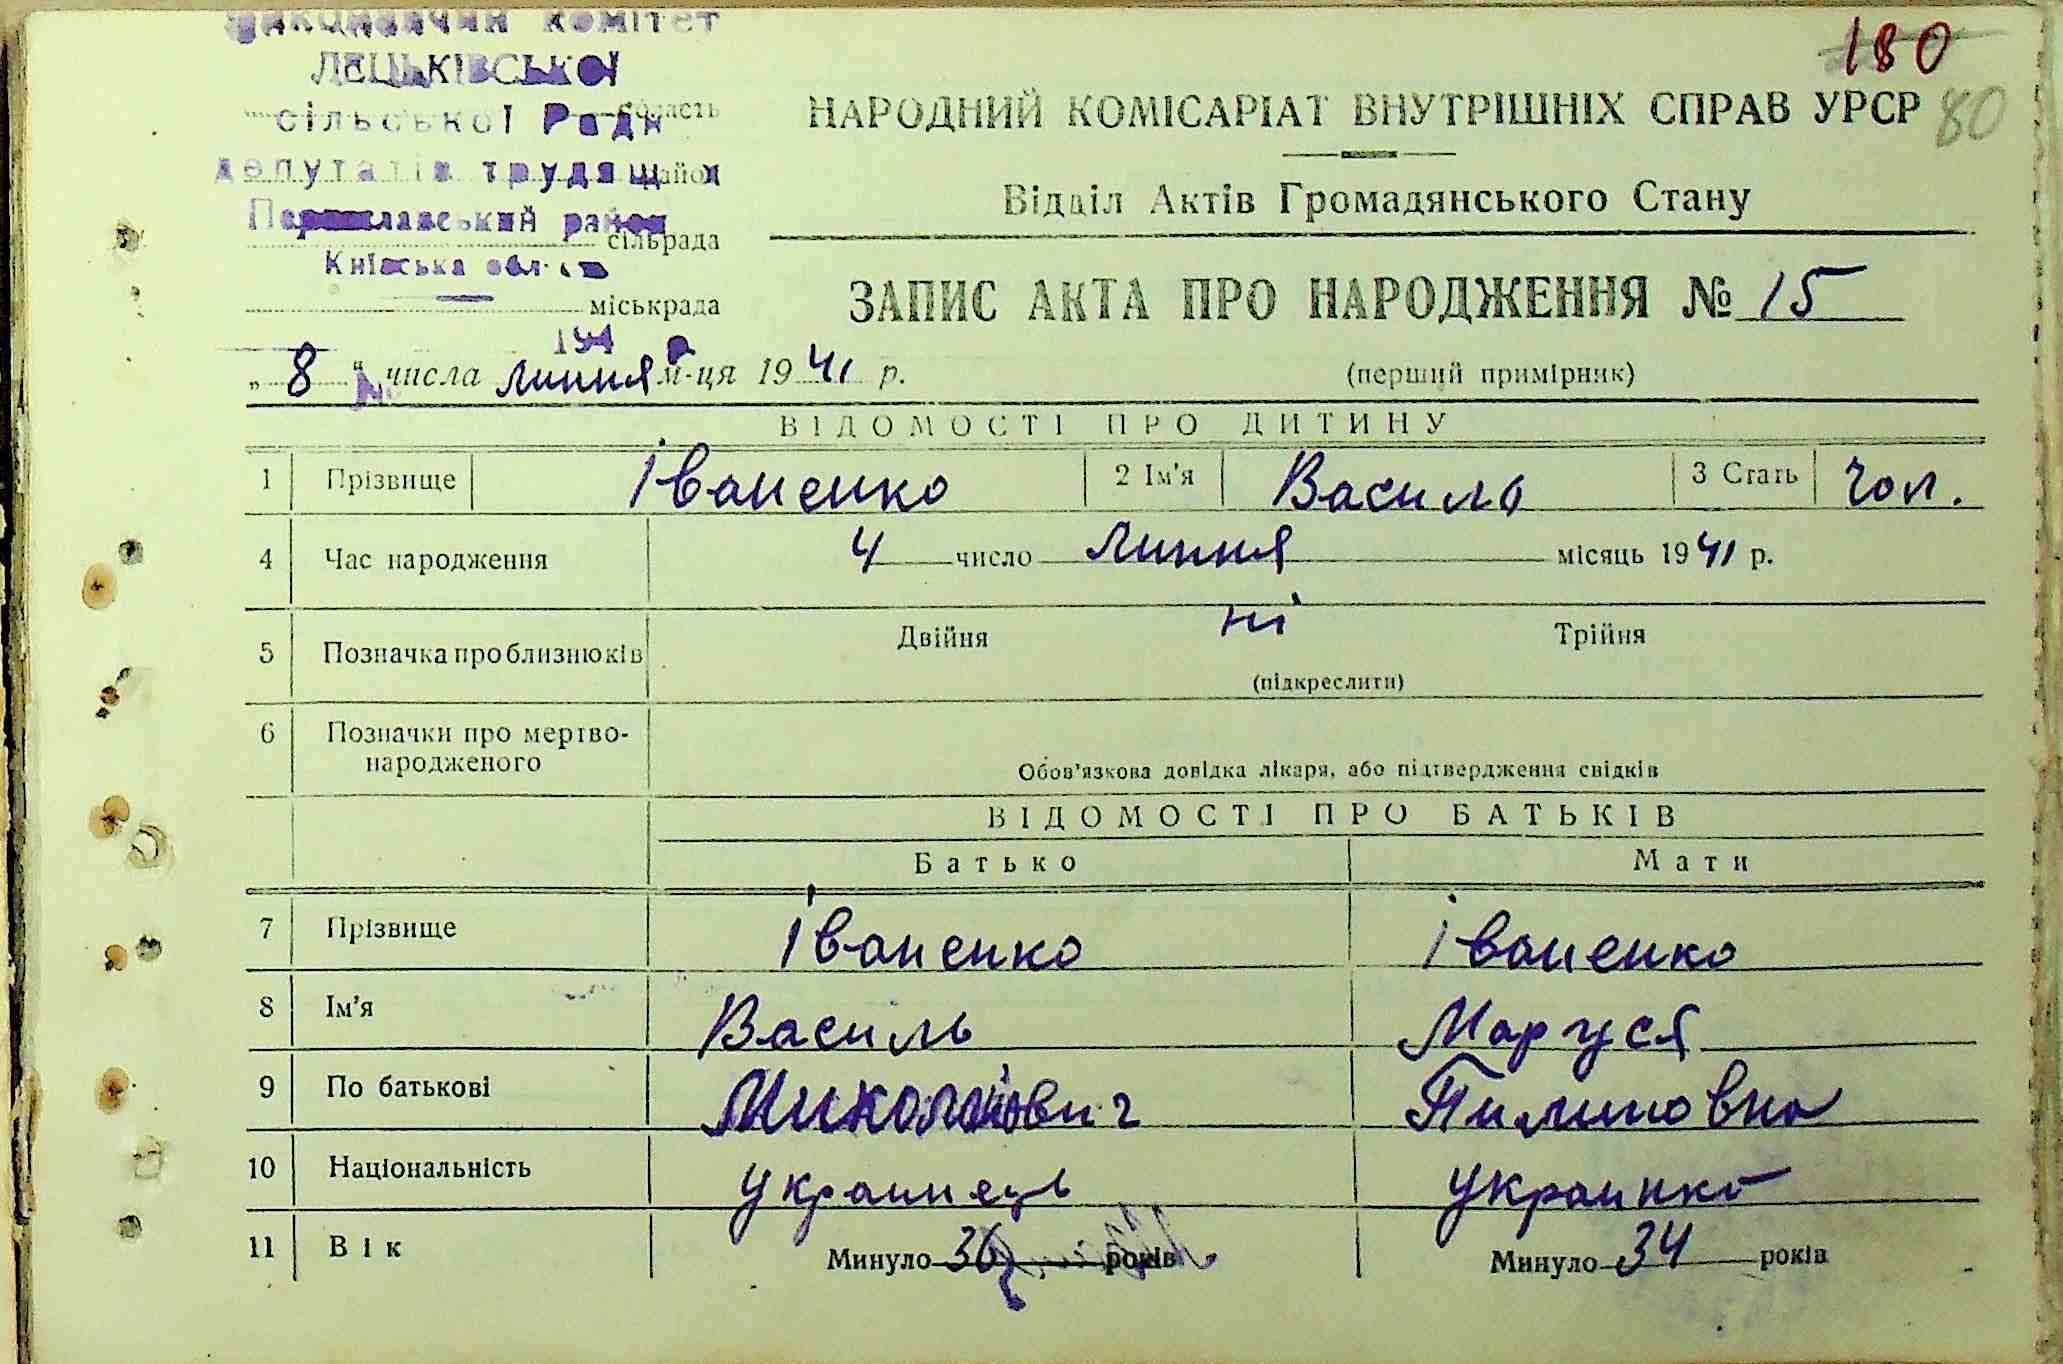 Виконавчий комітет
ЛЕЦЬКІВСЬКОЇ
сільської Ради
депутатів трудящих
Переяславський район
Київська область
область
район
сільрада
міськрада
194 р
180
80
НАРОДНИЙ КОМІСАРІАТ ВНУТРІШНІХ СПРАВ УРСР
Відділ Актів Громадянського Стану
ЗАПИС АКТА ПРО НАРОДЖЕННЯ № 15
„ 8 “ числа липня м-ця 1941 р.
(перший примірник)
ВІДОМОСТІ ПРО ДИТИНУ
1 Прізвище Іваненко 2 Ім'я Василь 3 Стать Чол.
4 Час народження 4 число липня місяць 1941 р.
5 Позначка про близнюків Двійня ні Трійня
(підкреслити)
6 Позначки про мертво-
народженого
Обов'язкова довідка лікаря, або підтвердження свідків
ВІДОМОСТІ ПРО БАТЬКІВ
Батько Мати
7 Прізвище Іваненко Іваненко
8 Ім'я Василь Маруся
9 По батькові Миколайович Пилиповна
10 Національність украинець украинка
11 Вік Минуло 36 років Минуло 34 років